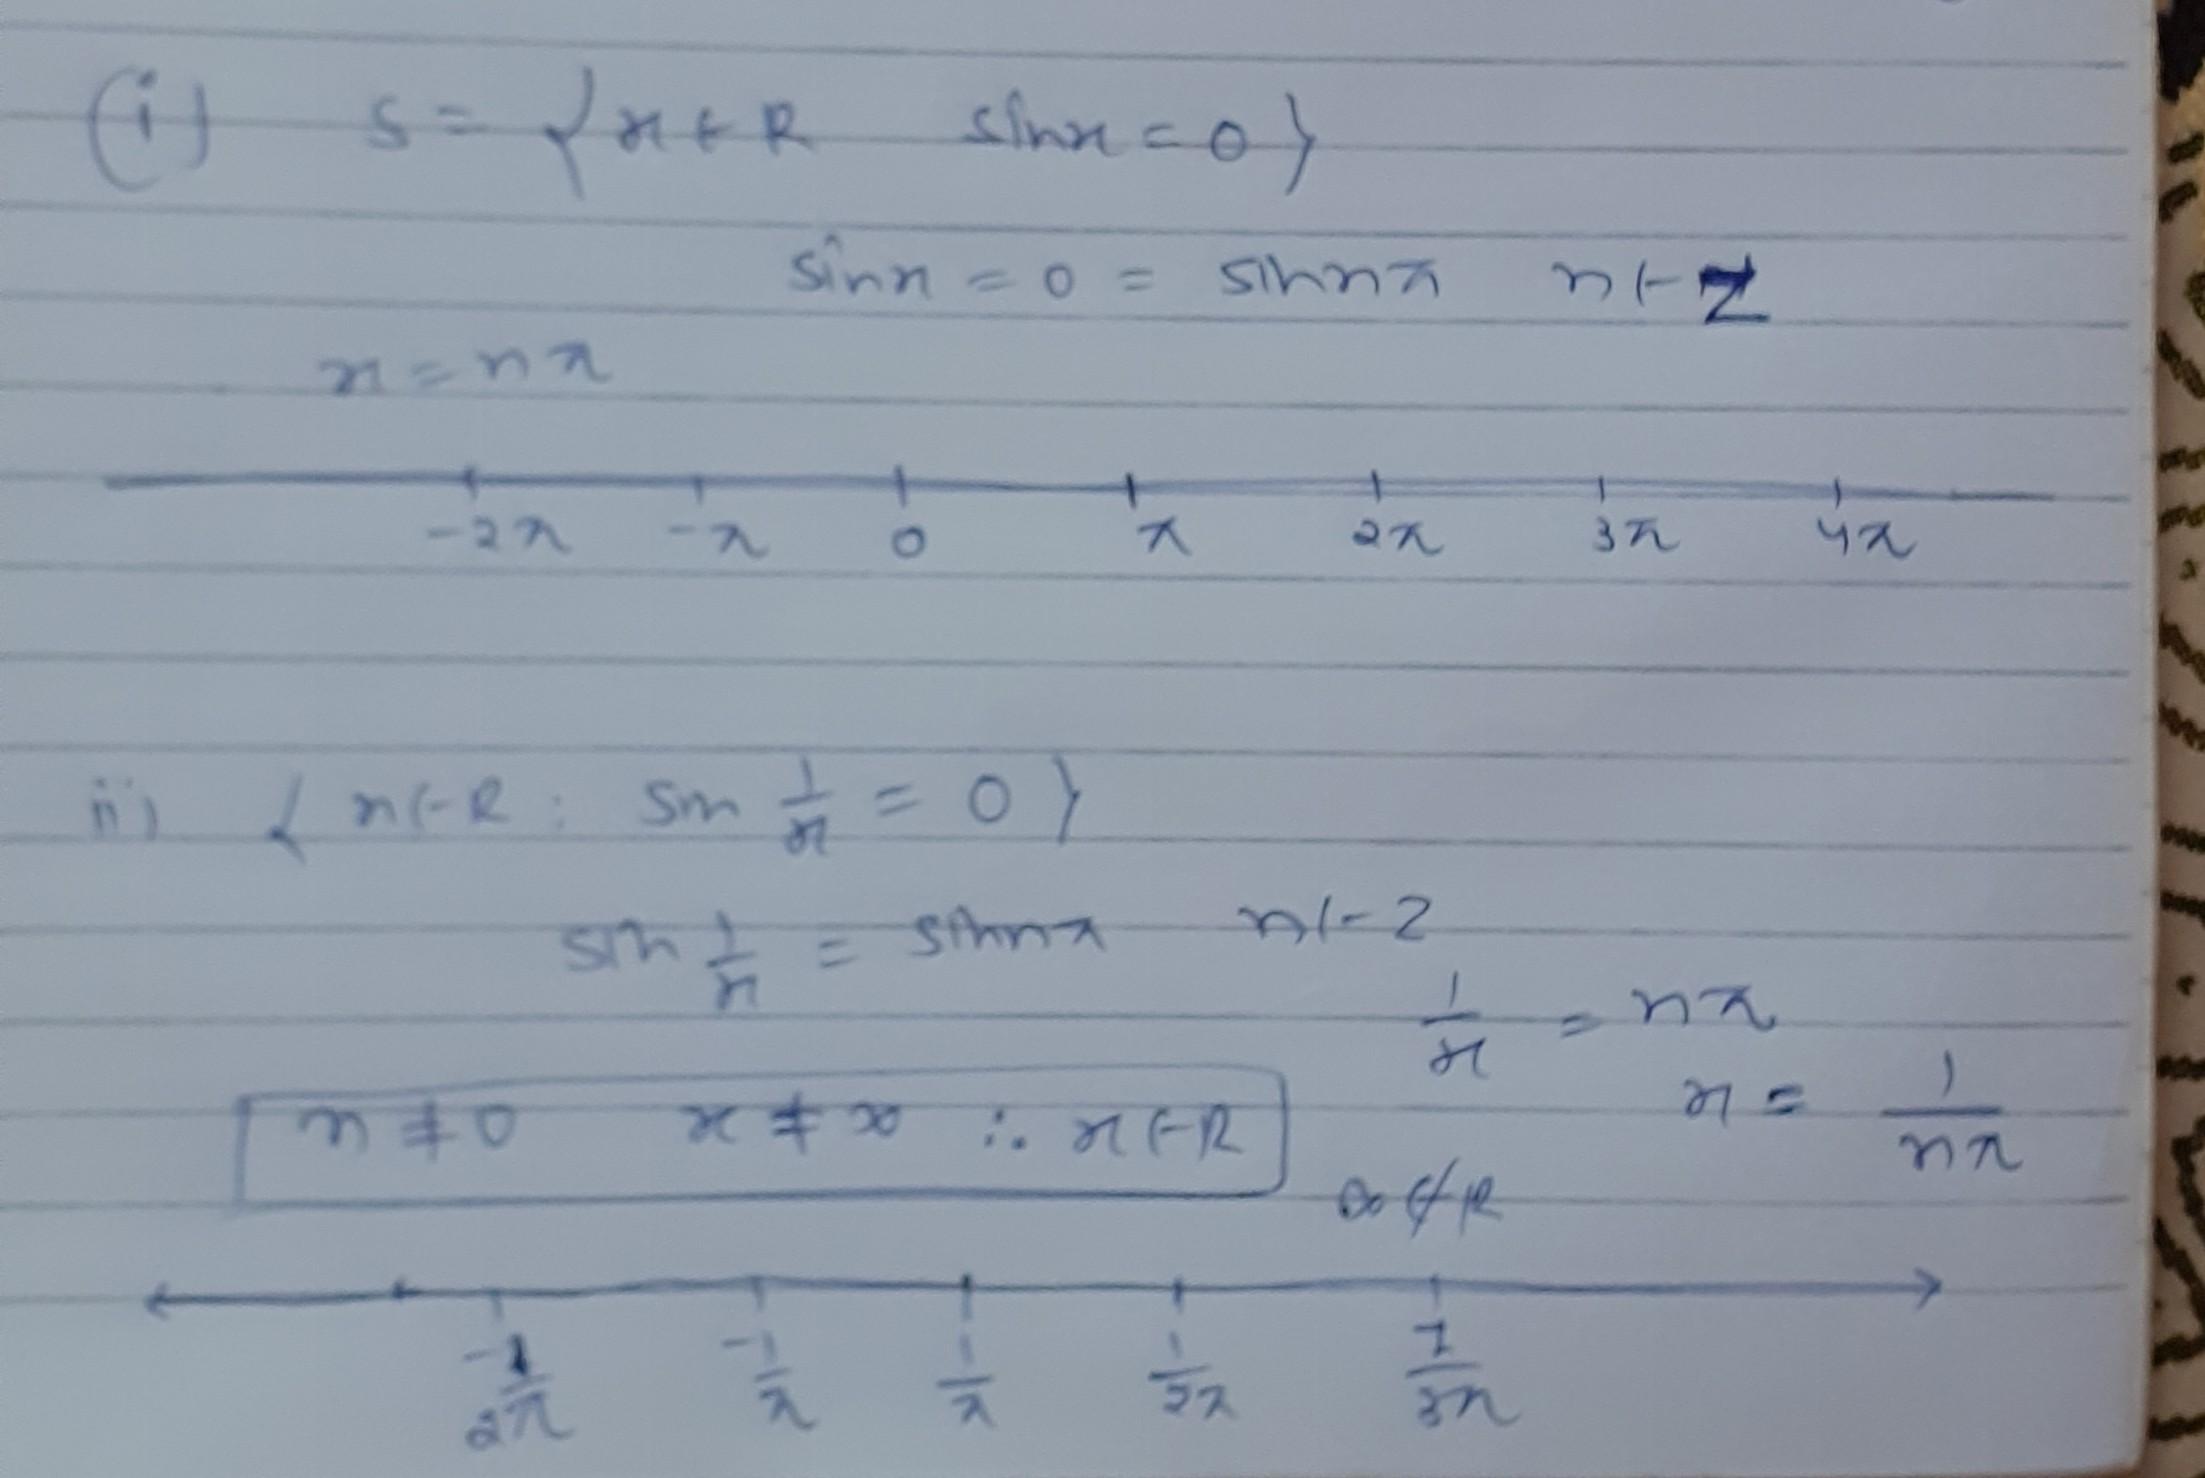 (i) S = { x ∈ R sin x = 0 }
sin x = 0 = sin nπ n ∈ Z
x = nπ
-2π -π 0 π 2π 3π 4π
ii) { x ∈ R : sin 1/x = 0 }
sin 1/x = sin nπ n ∈ Z
1/x = nπ
x = 1/nπ
n ≠ 0 x ≠ ∞ ∴ x ∈ R
∞ ∉ R
-1/2π -1/π 1/π 1/2π 1/3π